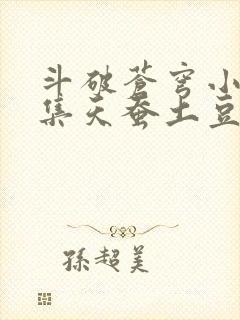 斗破苍穹小
集天蚕土豆
孫超美